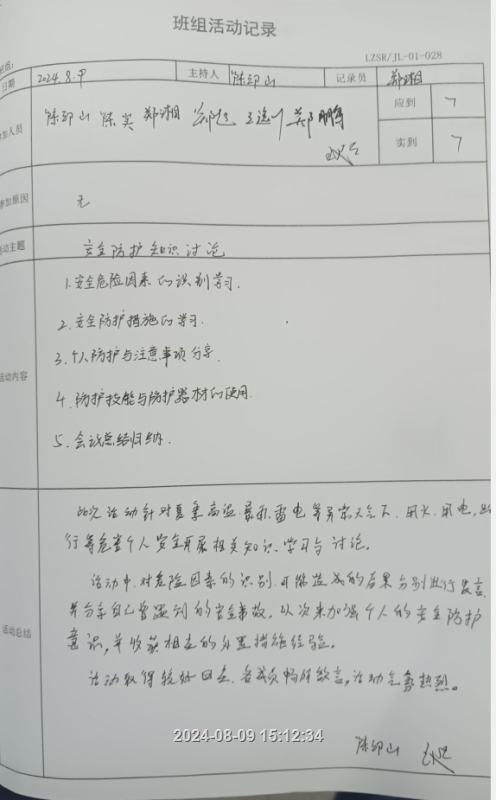 班组活动记录
LZSR/JL-01-028
日期 2024.8.9 主持人 陈印山 记录员 郑湘
加人员 陈印山 陈英 郑湘 应到 7
实到 7
参加原因 无
活动主题 安全防护知识讨论
活动内容
1.安全危险因素的识别学习.
2.安全防护措施的学习.
3.个人防护与注意事项分享
4.防护技能与防护器材的使用
5.会议总结归纳.
活动总结
此次活动针对夏季高温.暴雨.雷电等异常天气下.用火.用电.
行等危害个人安全开展相关知识学习与讨论。
活动中.对危险因素的识别.可能造成的后果分别进行发言
并分享自己曾遇到的安全事故,以次来加强个人的安全防护
意识,并收获相应的处置措施经验。
活动取得较好回应.各成员畅所欲言,活动气氛热烈。
2024-08-09 15:12:34
陈印山